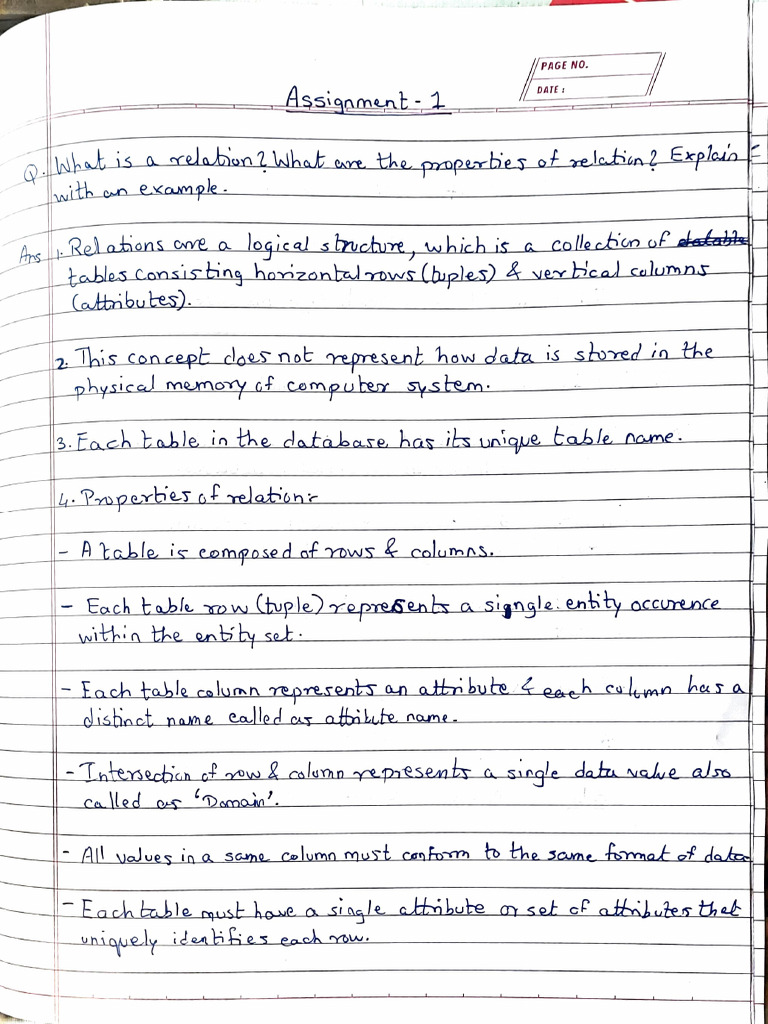 PAGE NO.
DATE :
Assignment - 1
Q. What is a relation? What are the properties of relation? Explain
with an example.
Ans 1. Relations are a logical structure, which is a collection of
tables consisting horizontal rows (tuples) & vertical columns
(attributes).
2. This concept does not represent how data is stored in the
physical memory of computer system.
3. Each table in the database has its unique table name.
4. Properties of relation:-
- A table is composed of rows & columns.
- Each table row (tuple) represents a single entity occurence
within the entity set.
- Each table column represents an attribute & each column has a
distinct name called as attribute name.
- Intersection of row & column represents a single data value also
called as 'Domain'.
- All values in a same column must conform to the same format of data
- Each table must have a single attribute or set of attributes that
uniquely identifies each row.